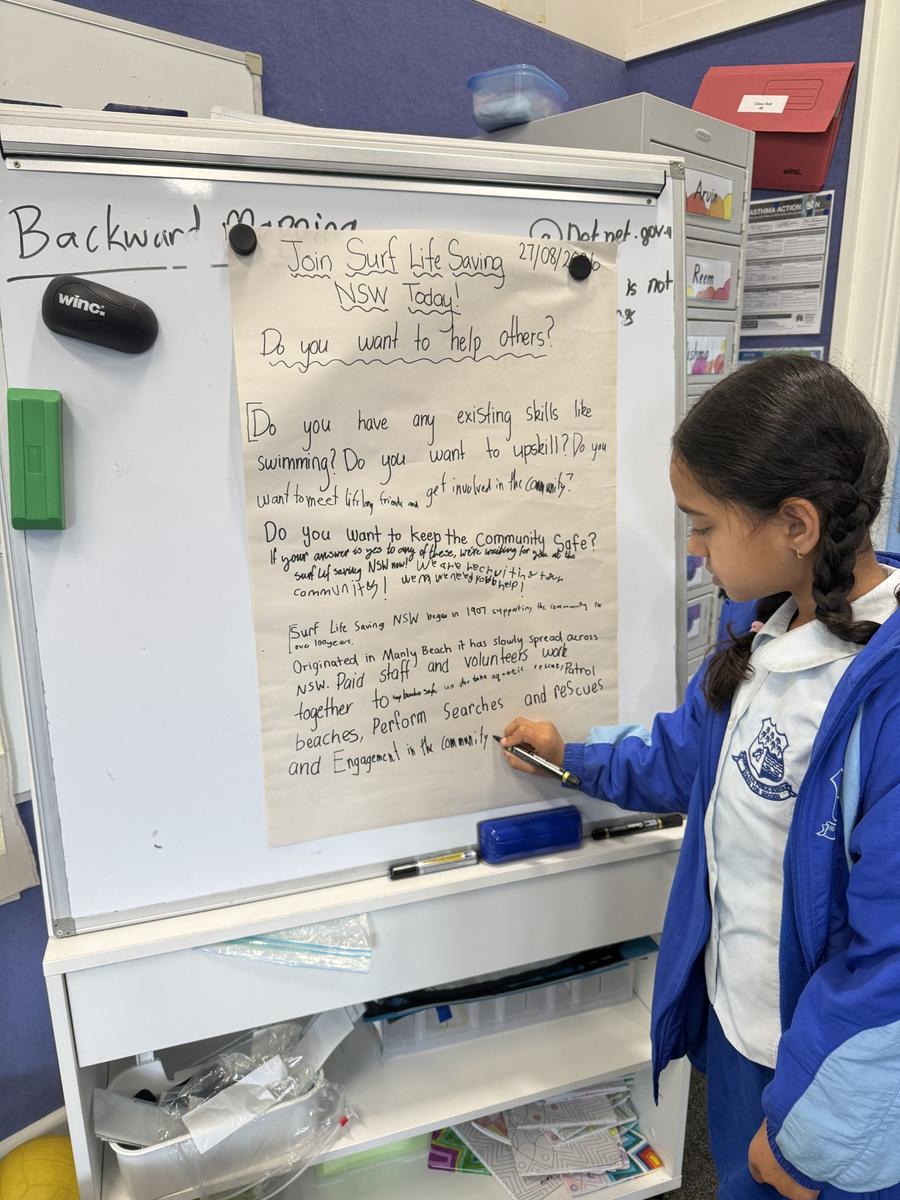 Backward Mapping
Dot.net.gov.a
is not
Join Surf Life Saving
27/08/2026
NSW Today!
Do you want to help others?
[Do you have any existing skills like
swimming? Do you want to upskill? Do you
want to meet lifelong friends and get involved in the community?
Do you want to keep the Community Safe?
If your answer is yes to any of these, we're waiting for you at the
surf lif saving NSW now! We are recruiting
community! we need help!
[Surf Life Saving NSW began in 1907 supporting the community for
over 100 years.
Originated in Manly Beach it has slowly spread across
NSW. Paid staff and volunteers work
together to aquatic rescue, Patrol
beaches, Perform Searches and rescues
and Engagement in the community
winc.
Arvin
Reem
Class Roll
winc.
ASTHMA ACTION